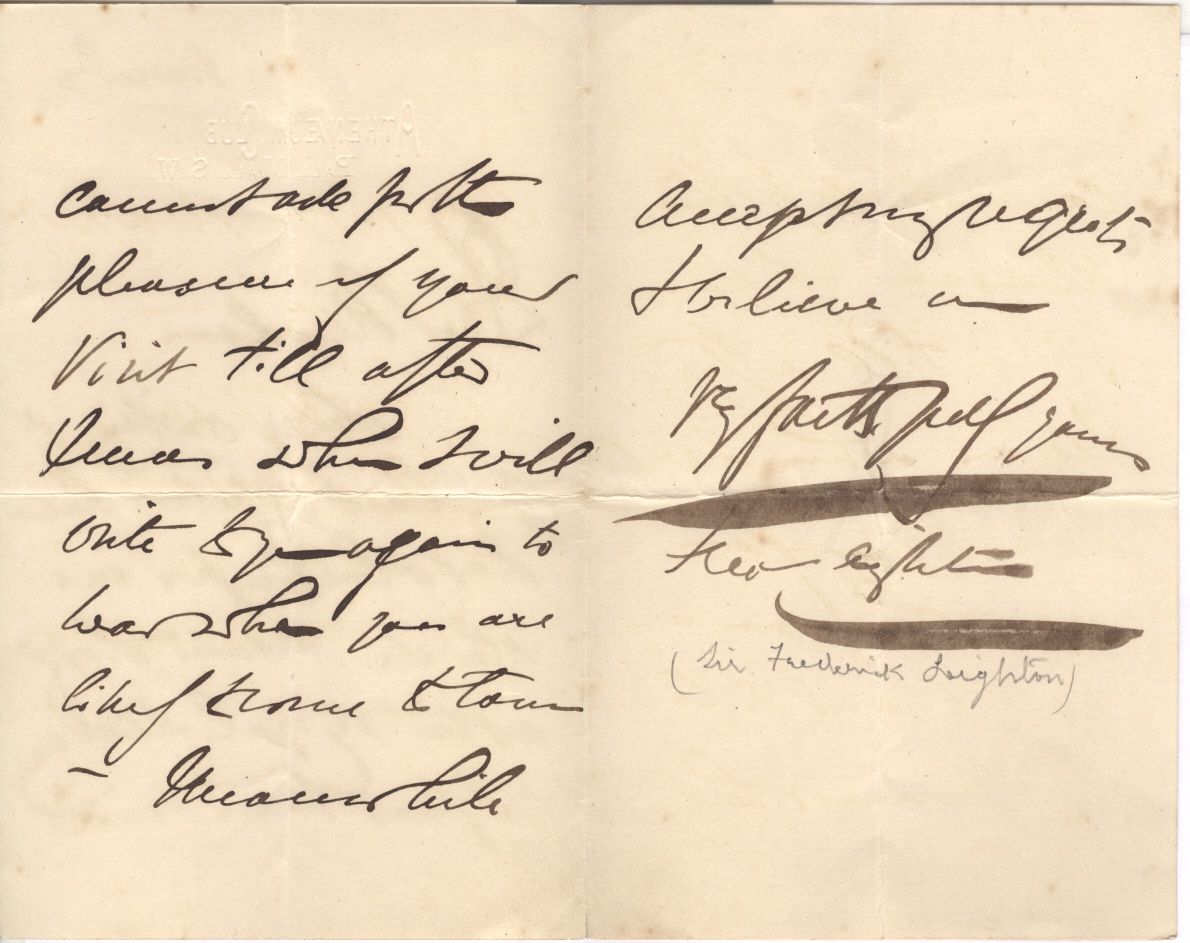 cannot ask for the
pleasure of your
visit till after
Xmas when I will
write to you again to
hear when you are
likely to come to town
– Meanwhile
Accepting regrets
I believe me
Vy faithfully yours
Fred Leighton
(Sir Frederick Leighton)
ATHENAEUM CLUB
PALL MALL S.W.